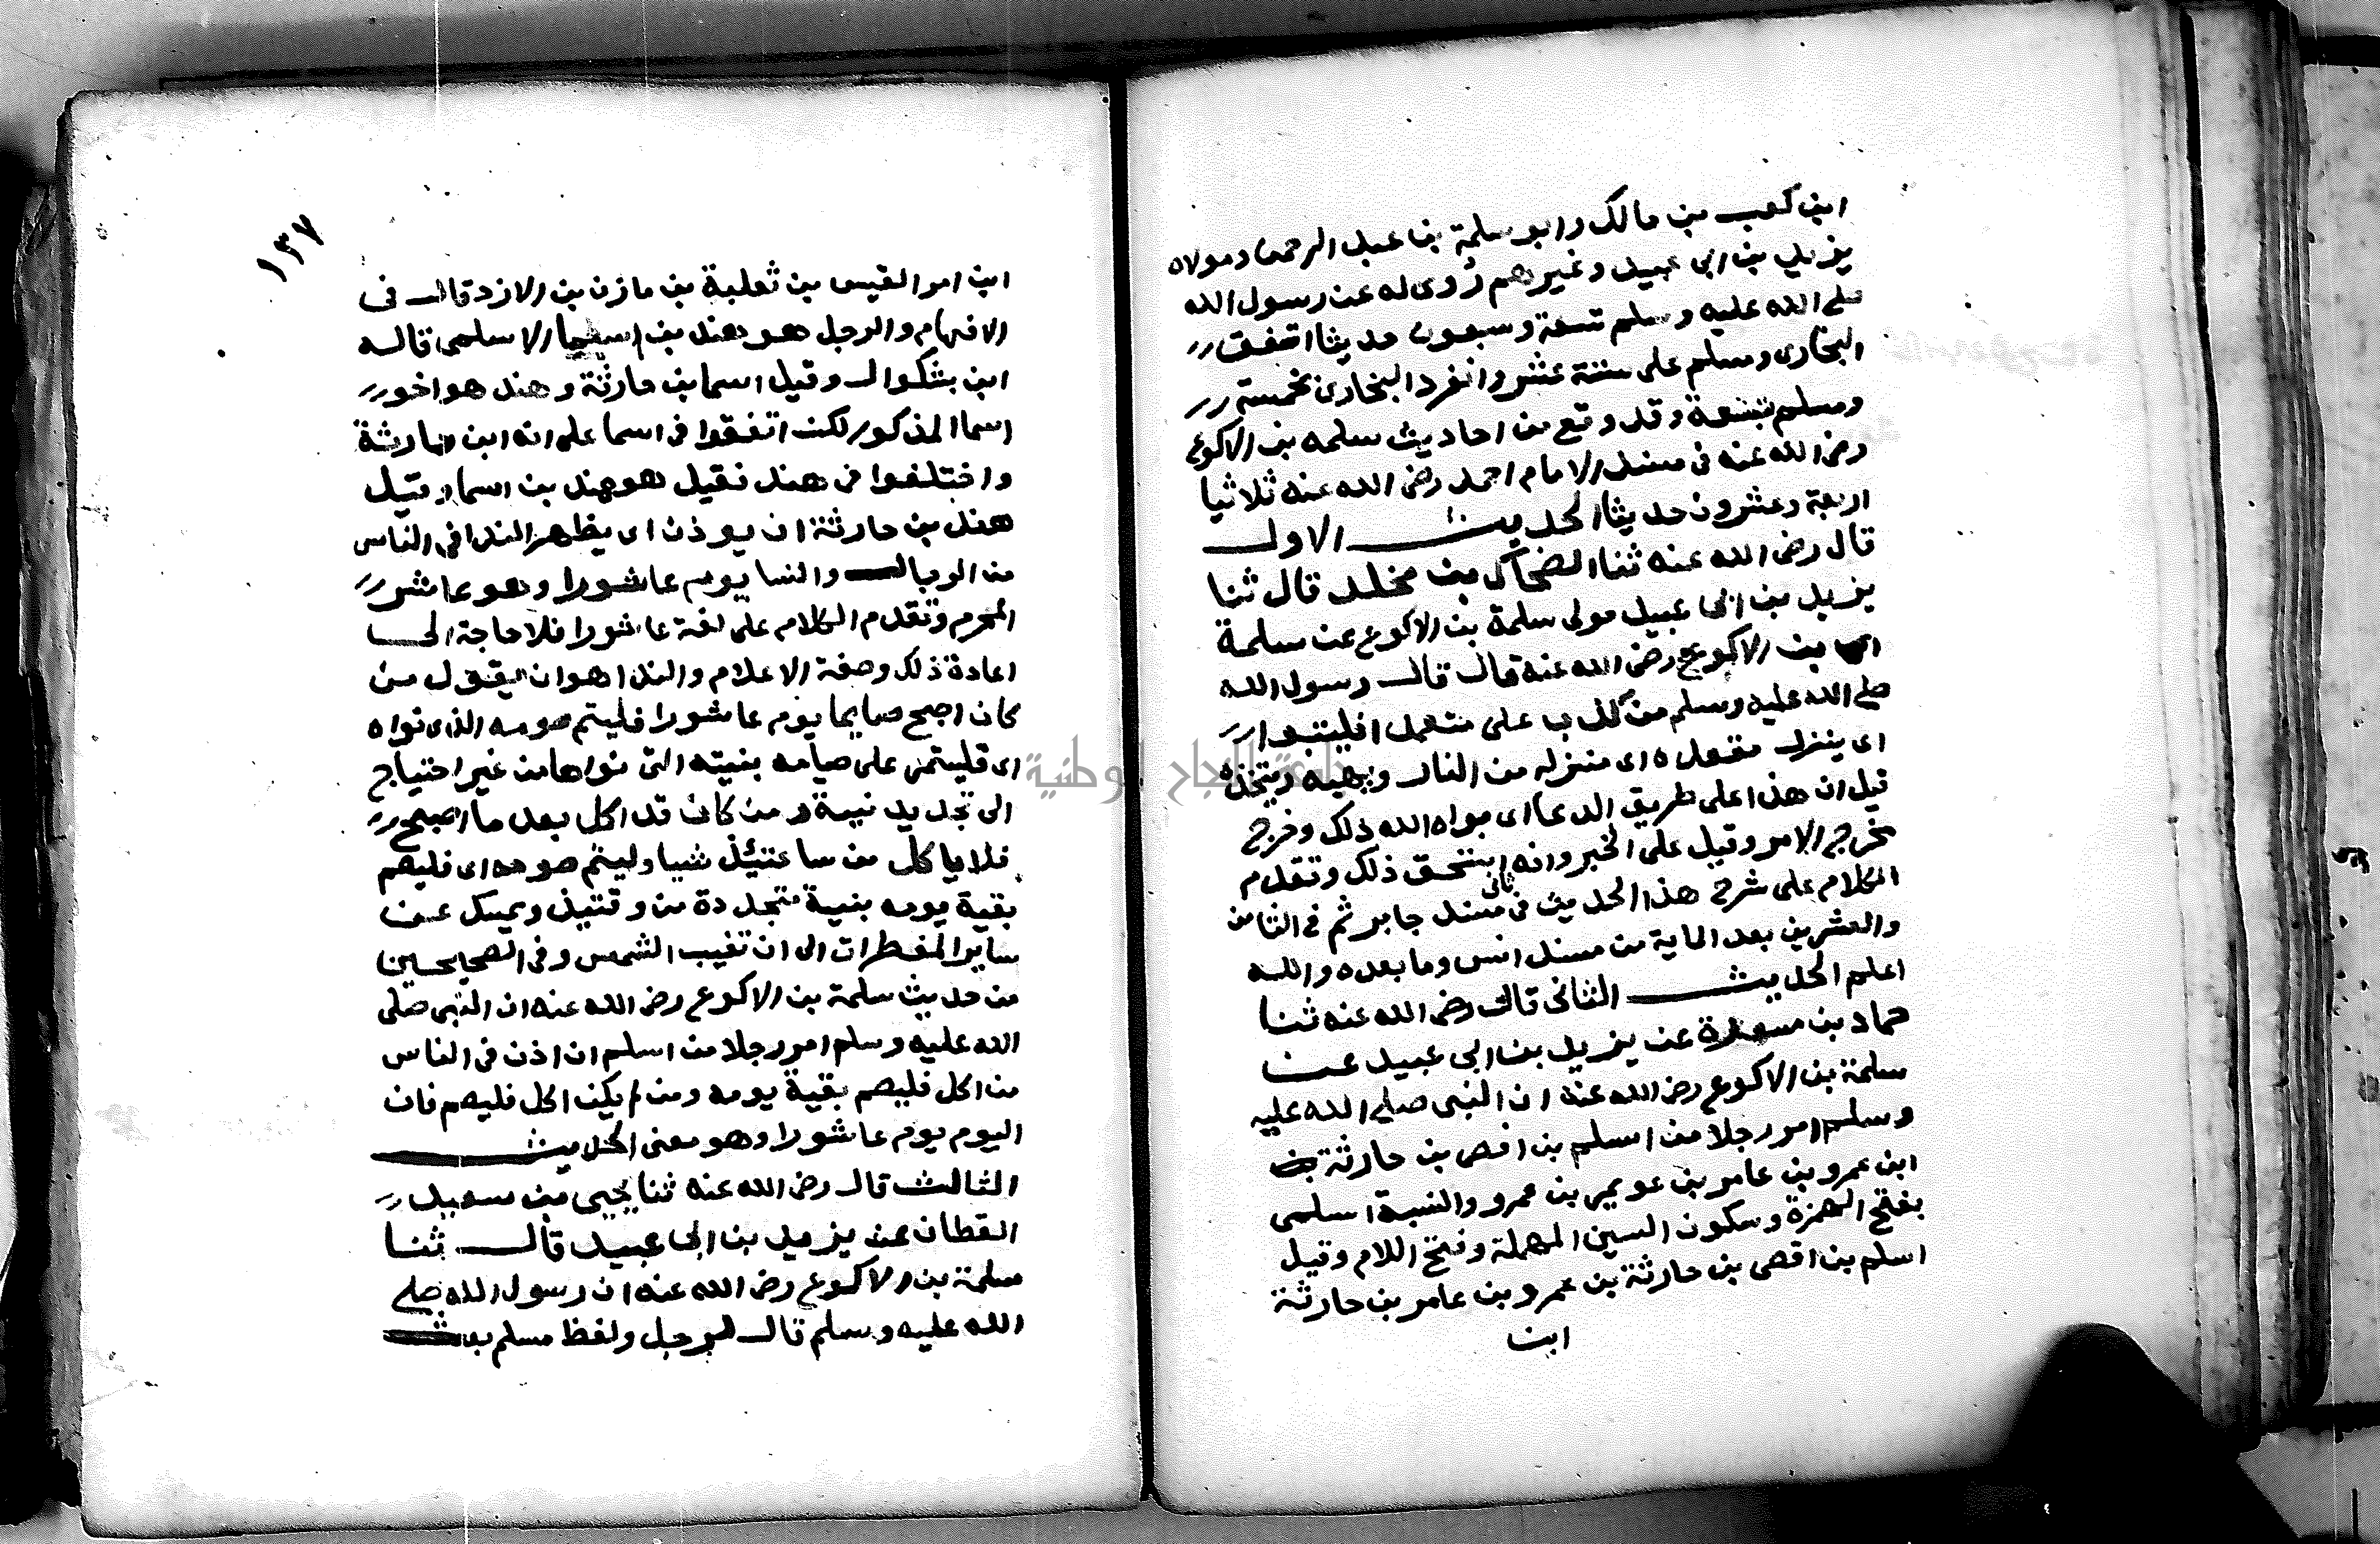 ابن كعب بن مالك وابو سلمة بن عبد الرحمن ومولاه
يزيد بن ابى عبيد وغيرهم روى له عن رسول الله
صلى الله عليه وسلم تسعة وسبعون حديثا اتفق
البخارى ومسلم على ستة عشر وانفرد البخارى بخمسة
ومسلم بتسعة وقد وقع من احاديث سلمه بن الاكوع
رضى الله عنه فى مسند الامام احمد رضى الله عنه ثلاثيا
اربعة وعشرون حديثا الحديث الاول
قال رضى الله عنه ثنا الضحاك بن مخلد قال ثنا
يزيد بن ابى عبيد مولى سلمة بن الاكوع عن سلمة
بن الاكوع رضى الله عنه قال قال رسول الله
صلى الله عليه وسلم من كذب على متعمدا فليتبوا
اى ينزل مقعده اى منزله من النار ويهيه ويتخذه
قيل ان هذا على طريق الدعا اى بواه الله ذلك وخرج
مخرج الامر وقيل على الخبر وانه استحق ذلك وتقدم
الكلام على شرح هذا الحديث فى ثانى مسند جابر ثم فى الثامن
والعشرين بعد الماية من مسند انس وما بعده والله
اعلم الحديث الثانى قال رضى الله عنه ثنا
حماد بن مسعدة عن يزيد بن ابى عبيد عن
سلمة بن الاكوع رضى الله عنه ان النبى صلى الله عليه
وسلم امر رجلا من اسلم بن افصى بن حارثة
ابن عمرو بن عامر بن عويمر بن عمرو والنسبة اسلمى
بفتح الهمزة وسكون السين المهملة وفتح اللام وقيل
اسلم بن افصى بن حارثة بن عمرو بن عامر بن حارثة
ابن
١٣٧
ابن امر القيس بن ثعلبة بن مازن بن الازد قال فى
الافهام والرجل هو هند بن اسما الاسلمى قاله
ابن بشكوال وقيل اسما بن حارثة وهند هو اخو
اسما المذكور لكن اتفقوا فى اسما على انه ابن حارثة
واختلفوا فى هند فقيل هو هند بن اسما وقيل
هند بن حارثة ان يوذن اى يظهر الندا فى الناس
من الرجال والنسا يوم عاشورا وهو عاشر
المحرم وتقدم الكلام على لغة عاشورا فلا حاجة الى
اعادة ذلك وصفة الاعلام والندا هو ان يقول من
كان اصبح صايما يوم عاشورا فليتم صومه الذى نواه
اى فليتمر على صيامه بنيته التى نواها من غير احتياج
الى تجديد نية ومن كان قد اكل بعد ما اصبح
فلا ياكل من ساعتيئذ شيا وليتم صومه اى فليصم
بقية يومه بنية متجددة من وقتيذ ويمسك عن
ساير المفطرات الى ان تغيب الشمس وفى الصحيحين
من حديث سلمة بن الاكوع رضى الله عنه ان النبى صلى
الله عليه وسلم امر رجلا من اسلم ان اذن فى الناس
من اكل فليصم بقية يومه ومن لم يكن اكل فليصم فان
اليوم يوم عاشورا وهو معنى الحديث
الثالث قال رضى الله عنه ثنا يحيى بن سعيد
القطان عن يزيد بن ابى عبيد قال ثنا
سلمة بن الاكوع رضى الله عنه ان رسول الله صلى
الله عليه وسلم قال لرجل ولفظ مسلم بعث
جامعة النجاح الوطنية